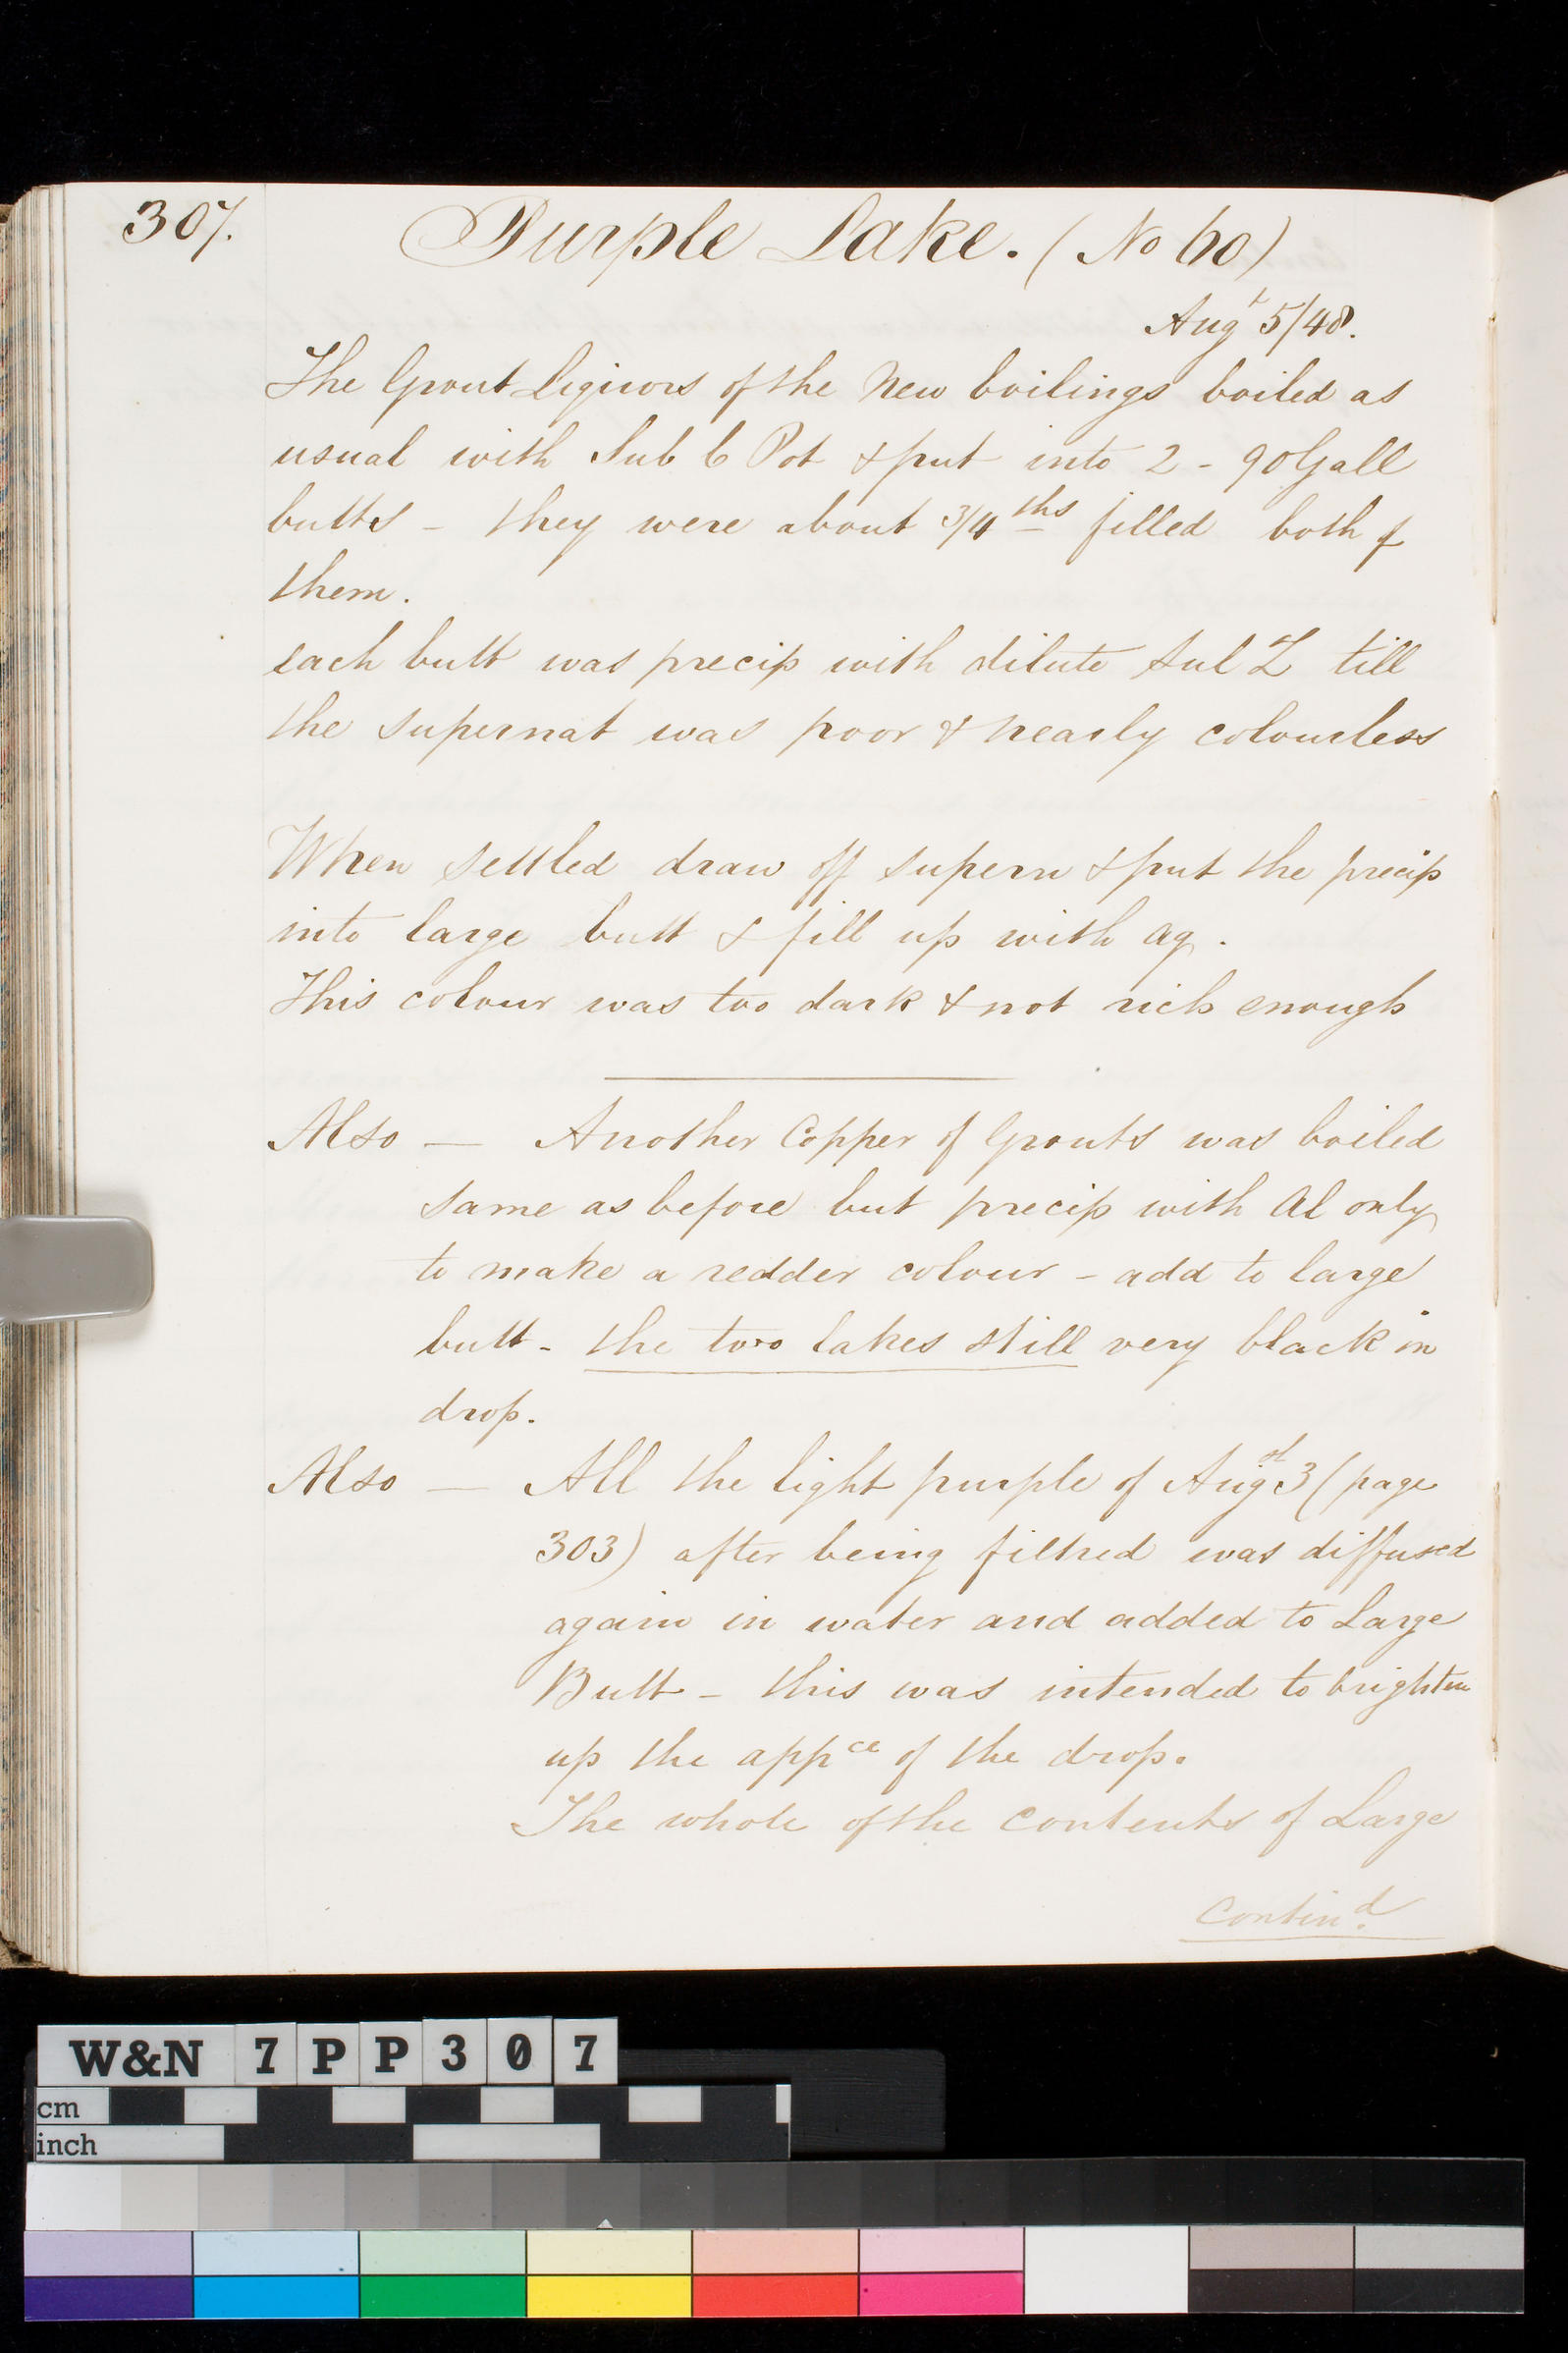 307.
Purple Lake. (No 60)
Augt 5/48.
The Grout Liquors of the New boilings boiled as
usual with Sub C Pot & put into 2 - 90 Gall
butts - they were about 3/4ths filled both of
them.
each butt was precip with dilute Sul Z till
the supernat was poor & nearly colourless
When settled draw off supern & put the precip
into large butt & fill up with aq.
This colour was too dark & not rich enough
Also — Another Copper of Grouts was boiled
same as before but precip with Al only
to make a redder colour - add to large
butt - the two lakes still very black in
drop.
Also — All the light purple of Augst 3 (page
303) after being filtred was diffused
again in water and added to Large
Butt - this was intended to brighten
up the appce of the drop.
The whole of the contents of Large
Contind.
W&N 7PP307
cm
inch